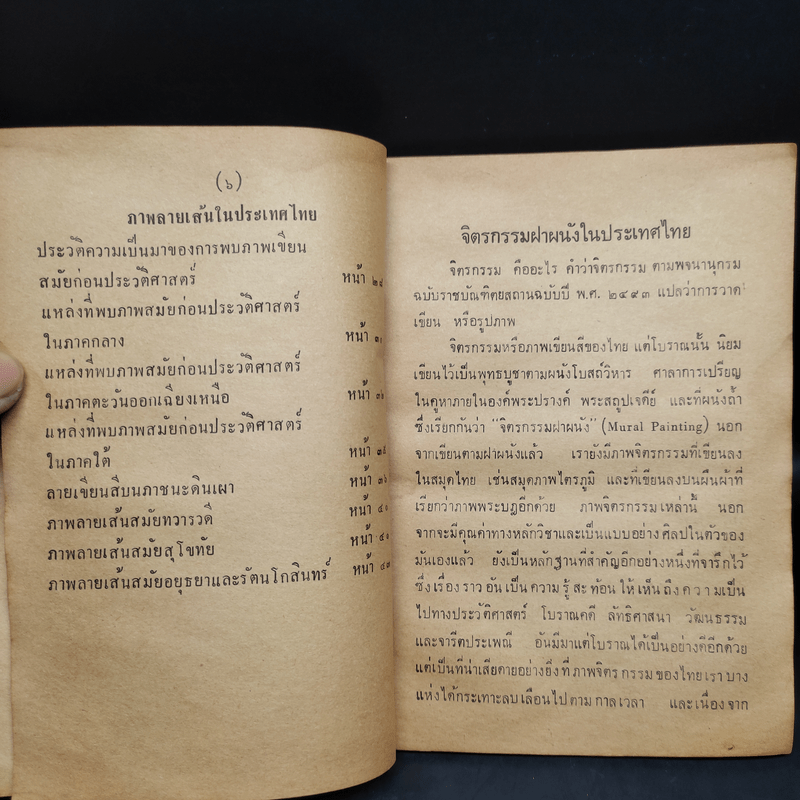 (๖)
ภาพลายเส้นในประเทศไทย
ประวัติความเป็นมาของการพบภาพเขียน
สมัยก่อนประวัติศาสตร์ หน้า ๒๘
แหล่งที่พบภาพสมัยก่อนประวัติศาสตร์
ในภาคกลาง หน้า
แหล่งที่พบภาพสมัยก่อนประวัติศาสตร์
ในภาคตะวันออกเฉียงเหนือ หน้า
แหล่งที่พบภาพสมัยก่อนประวัติศาสตร์
ในภาคใต้ หน้า
ลายเขียนสีบนภาชนะดินเผา หน้า
ภาพลายเส้นสมัยทวารวดี หน้า ๔๐
ภาพลายเส้นสมัยสุโขทัย หน้า ๔๑
ภาพลายเส้นสมัยอยุธยาและรัตนโกสินทร์ หน้า ๔๓
จิตรกรรมฝาผนังในประเทศไทย
จิตรกรรม คืออะไร คำว่าจิตรกรรม ตามพจนานุกรม
ฉบับราชบัณฑิตยสถานฉบับปี พ.ศ. ๒๔๙๓ แปลว่าการวาด
เขียน หรือรูปภาพ
จิตรกรรมหรือภาพเขียนสีของไทย แต่โบราณนั้น นิยม
เขียนไว้เป็นพุทธบูชาตามผนังโบสถ์วิหาร ศาลาการเปรียญ
ในคูหาภายในองค์พระปรางค์ พระสถูปเจดีย์ และที่ผนังถ้ำ
ซึ่งเรียกกันว่า "จิตรกรรมฝาผนัง" (Mural Painting) นอก
จากเขียนตามฝาผนังแล้ว เรายังมีภาพจิตรกรรมที่เขียนลง
ในสมุดไทย เช่นสมุดภาพไตรภูมิ และที่เขียนลงบนผืนผ้าที่
เรียกว่าภาพพระบฏอีกด้วย ภาพจิตรกรรมเหล่านี้ นอก
จากจะมีคุณค่าทางหลักวิชาและเป็นแบบอย่างศิลปในตัวของ
มันเองแล้ว ยังเป็นหลักฐานที่สำคัญอีกอย่างหนึ่งที่จารึกไว้
ซึ่งเรื่องราวอันเป็นความรู้สะท้อนให้เห็นถึงความเป็น
ไปทางประวัติศาสตร์ โบราณคดี ลัทธิศาสนา วัฒนธรรม
และจารีตประเพณี อันมีมาแต่โบราณได้เป็นอย่างดีอีกด้วย
แต่เป็นที่น่าเสียดายอย่างยิ่งที่ภาพจิตรกรรมของไทยเราบาง
แห่งได้กระเทาะลบเลือนไปตามกาลเวลา และเนื่องจาก